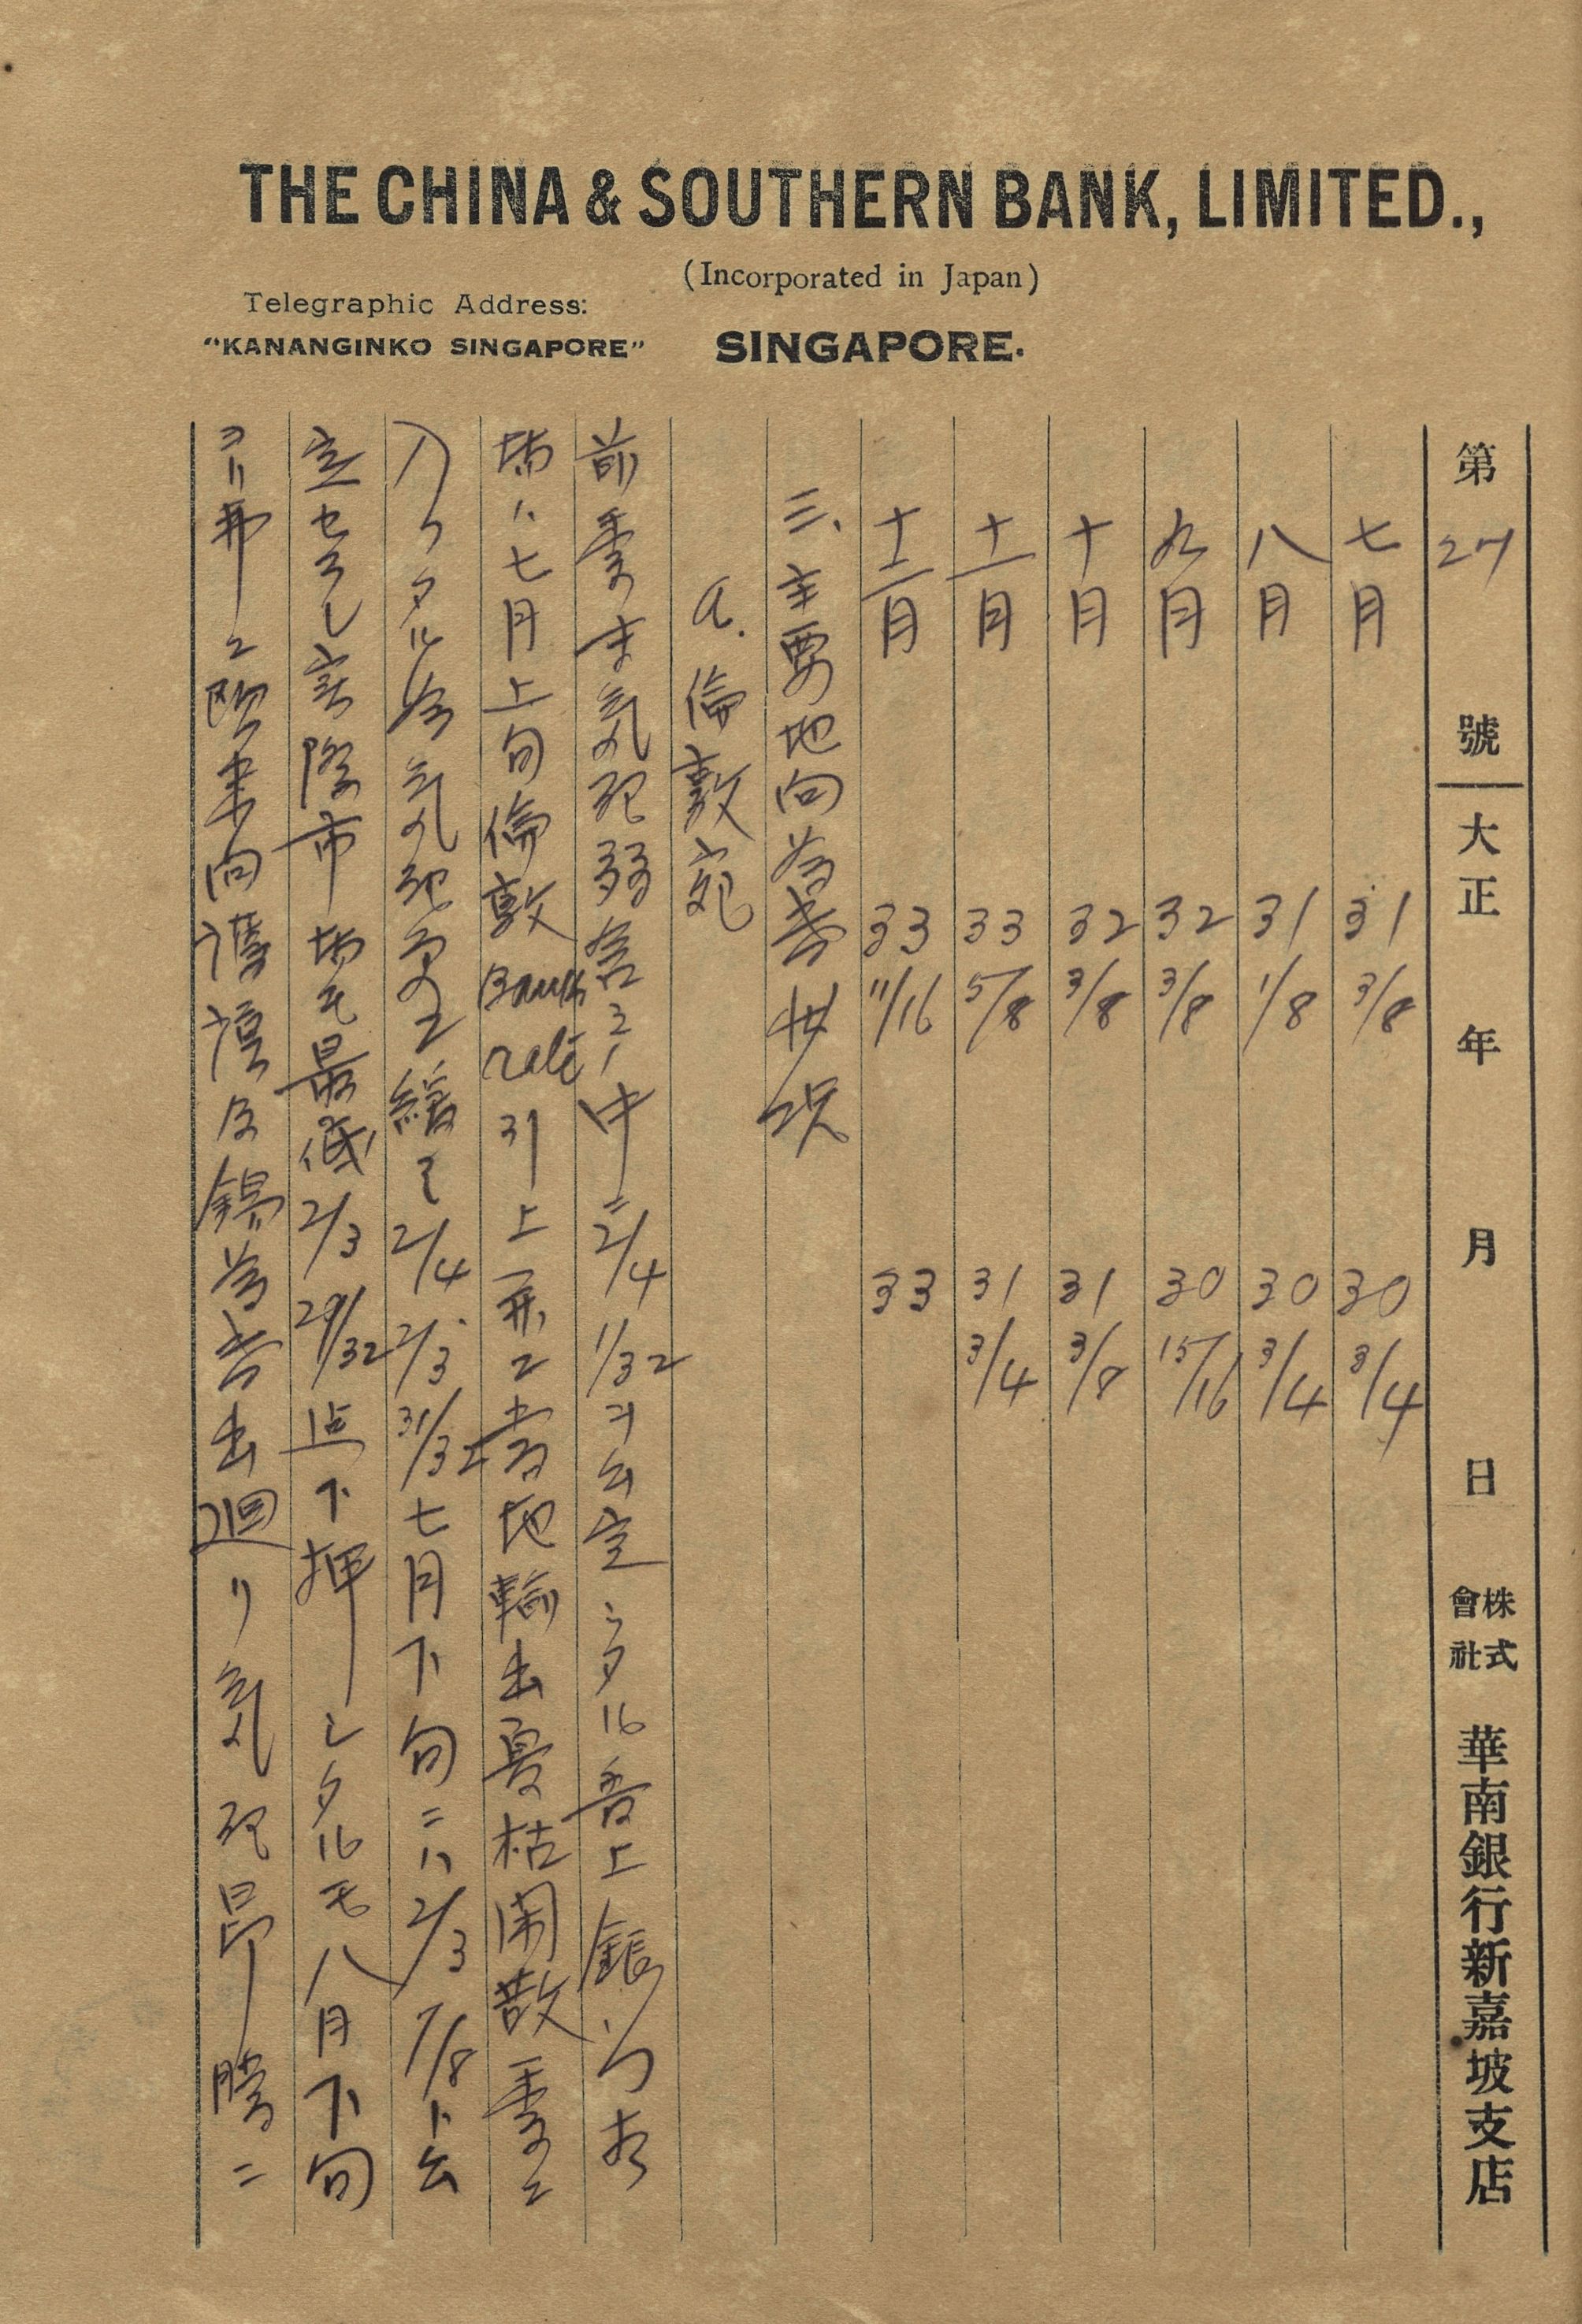 THE CHINA & SOUTHERN BANK, LIMITED.,
(Incorporated in Japan)
Telegraphic Address:
"KANANGINKO SINGAPORE"
SINGAPORE.
第 27 號 大正 年 月 日 株式會社 華南銀行新嘉坡支店
七月 31 3/8 30 3/4
八月 31 1/8 30 3/4
九月 32 3/8 30 15/16
十月 32 3/8 31 3/8
十一月 33 5/8 31 3/4
十二月 33 11/16 33
三、主要地向為替狀況
a. 倫敦宛
前季末気配弱含ミノ中ニ 2/4 1/32 ヲ公定シタル當上銀行相
場ハ七月上旬倫敦 Bank rate 引上並ニ當地輸出夏枯閑散季ニ
入リタル為気配更ニ緩ミ 2/4 2/3 31/32 七月下旬ニハ 2/3 7/8 ト公
定セラレ実際市場モ最低 2/3 29/32 迄下押シタルモ八月下旬
ヨリ弗ニ欧米向護謨及錫為替出廻リ気配昂騰ニ